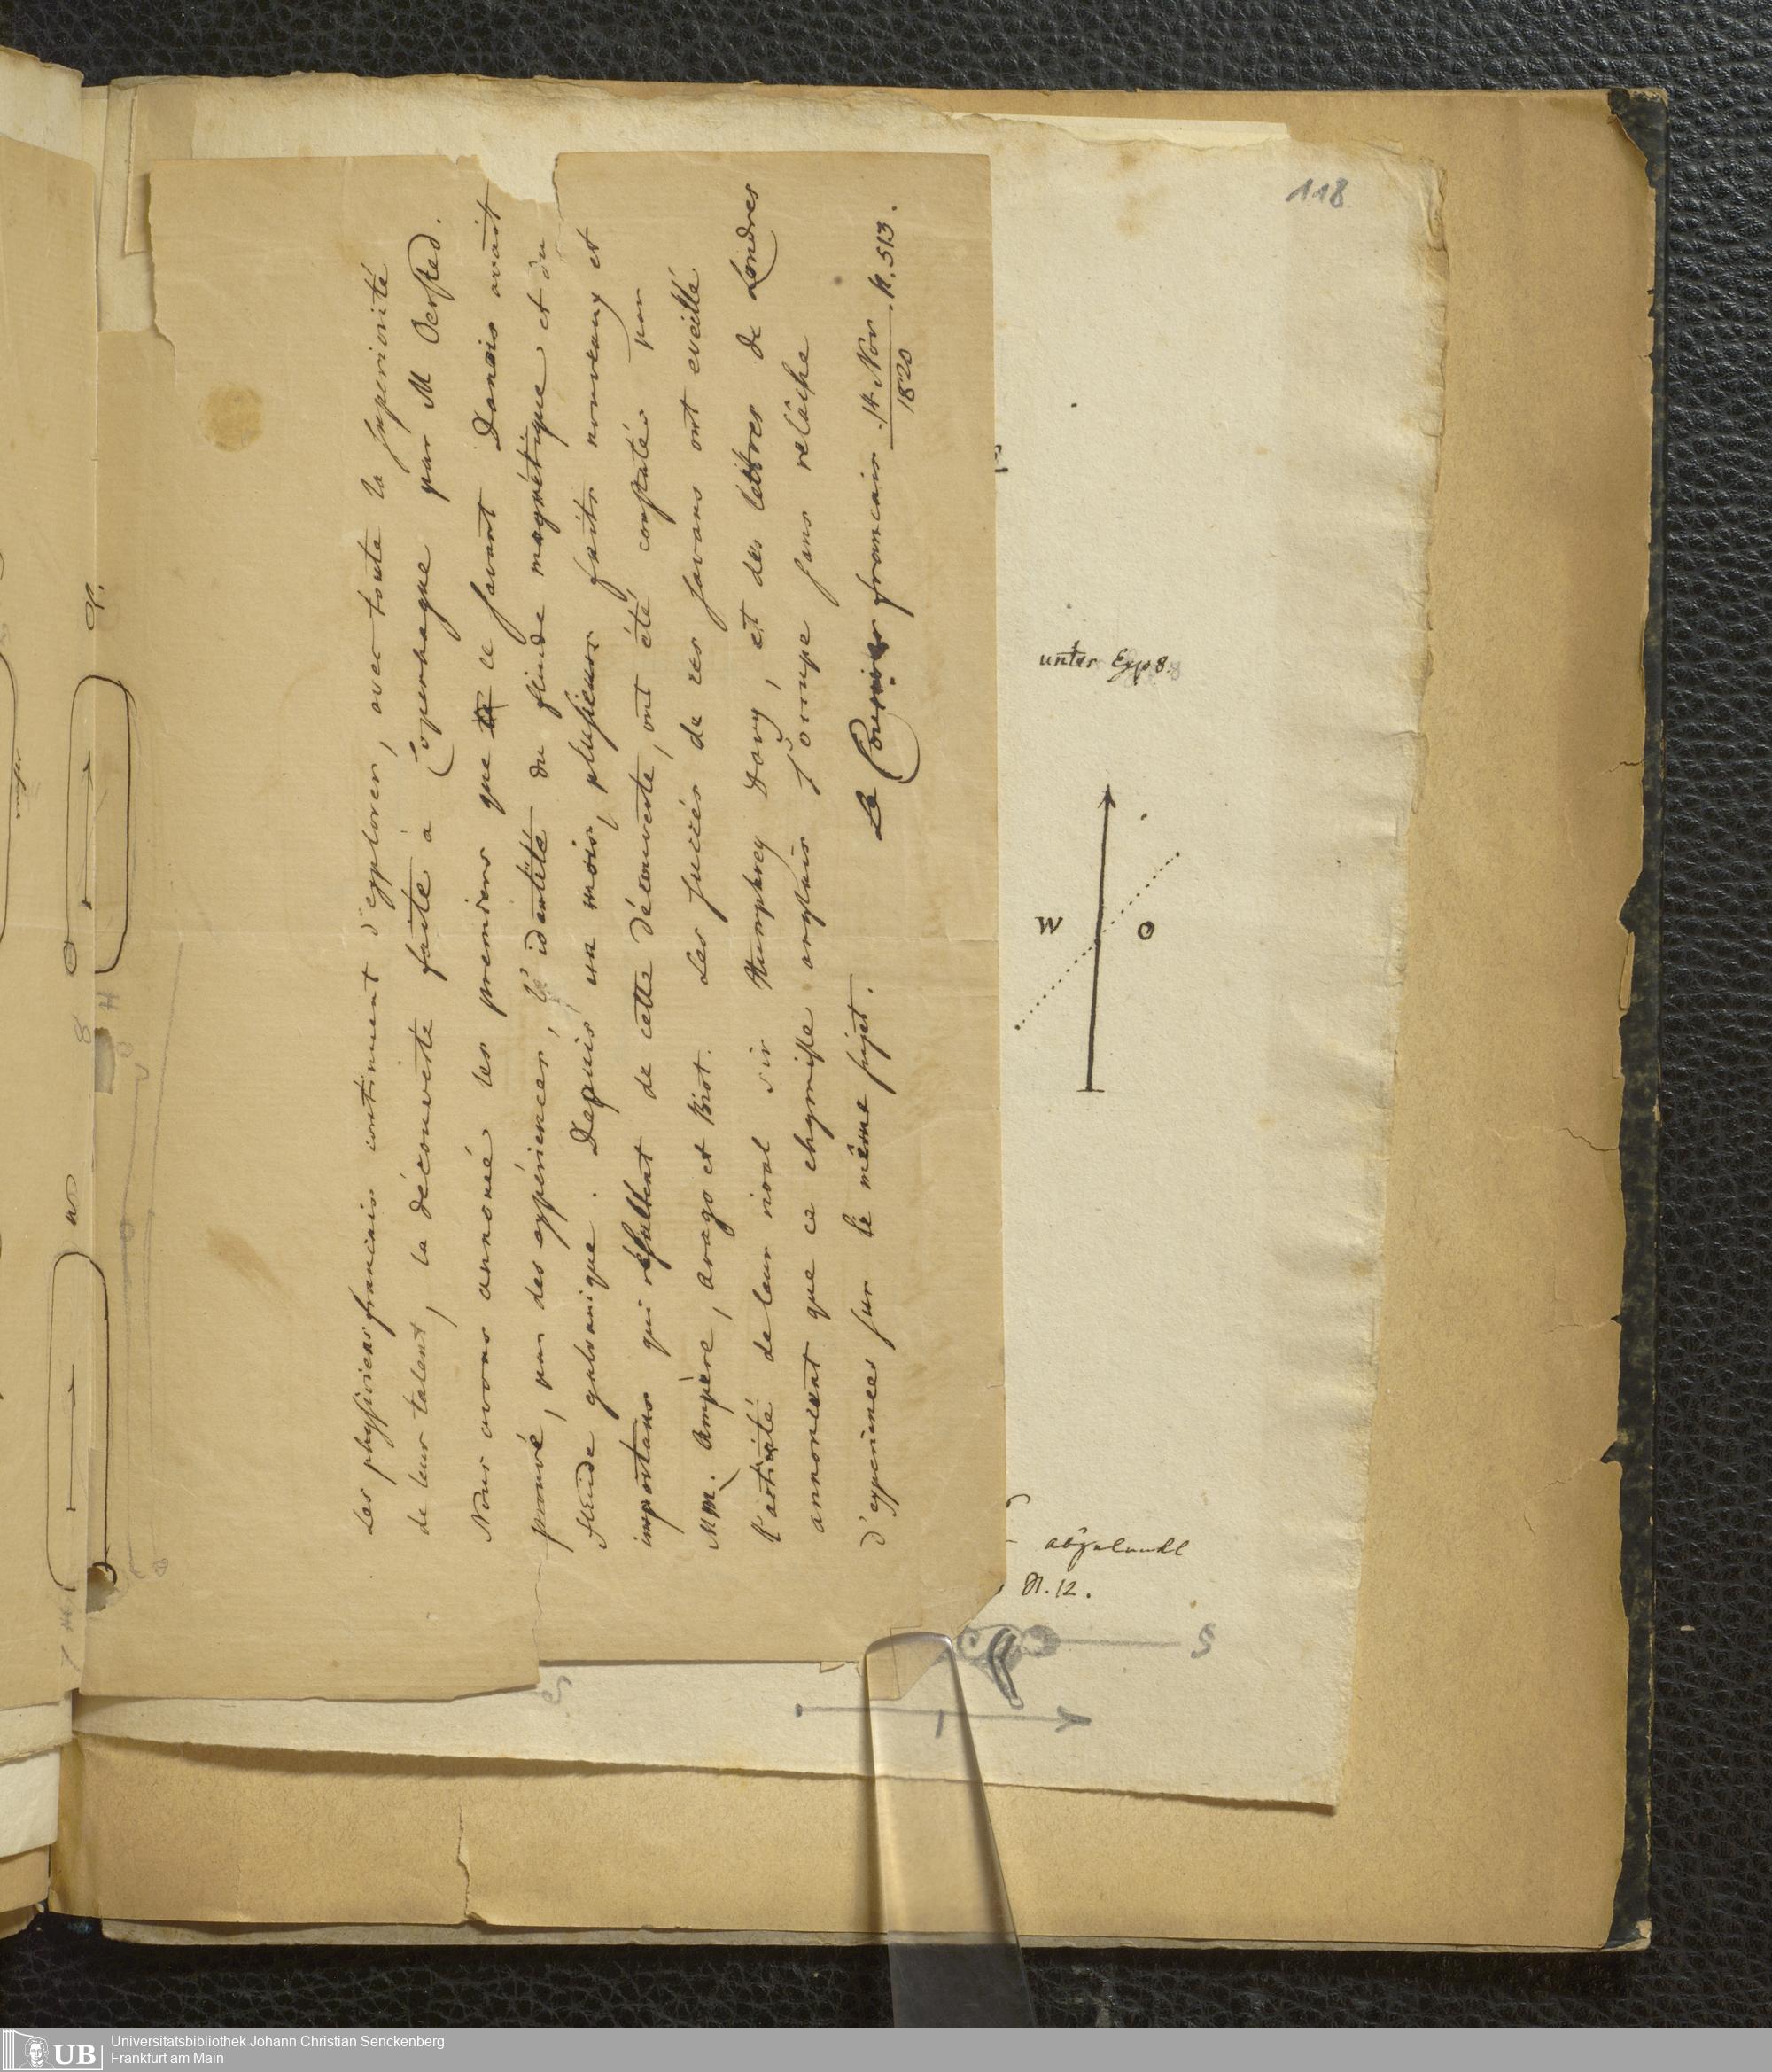 Les physiciens francais continuent d'explorer, avec toute la superiorité
de leur talent, la découverte faite à Copenhague par M Oersted.
Nous avons annoncé les premiers que ce savant Danois avait
prouvé, par des expériences, l'identité du fluide magnétique et du
fluide galvanique. Depuis un mois, plusieurs faits nouveaux et
importans qui résultent de cette découverte, ont été constatés par
MM. Ampère, Arago et Biot. Les succès de ces savans ont eveillé
l'activité de leur rival sir Humphrey Davy, et des lettres de Londres
annoncent que ce chymiste anglais s'occupe sans relâche
d'experiences sur le même sujet.
Le Courier francais .14 Nov N. 513.
1820
118
unter Exp 8.
W
O
abgelenkt
N. 12.
S
UB
Universitätsbibliothek Johann Christian Senckenberg
Frankfurt am Main